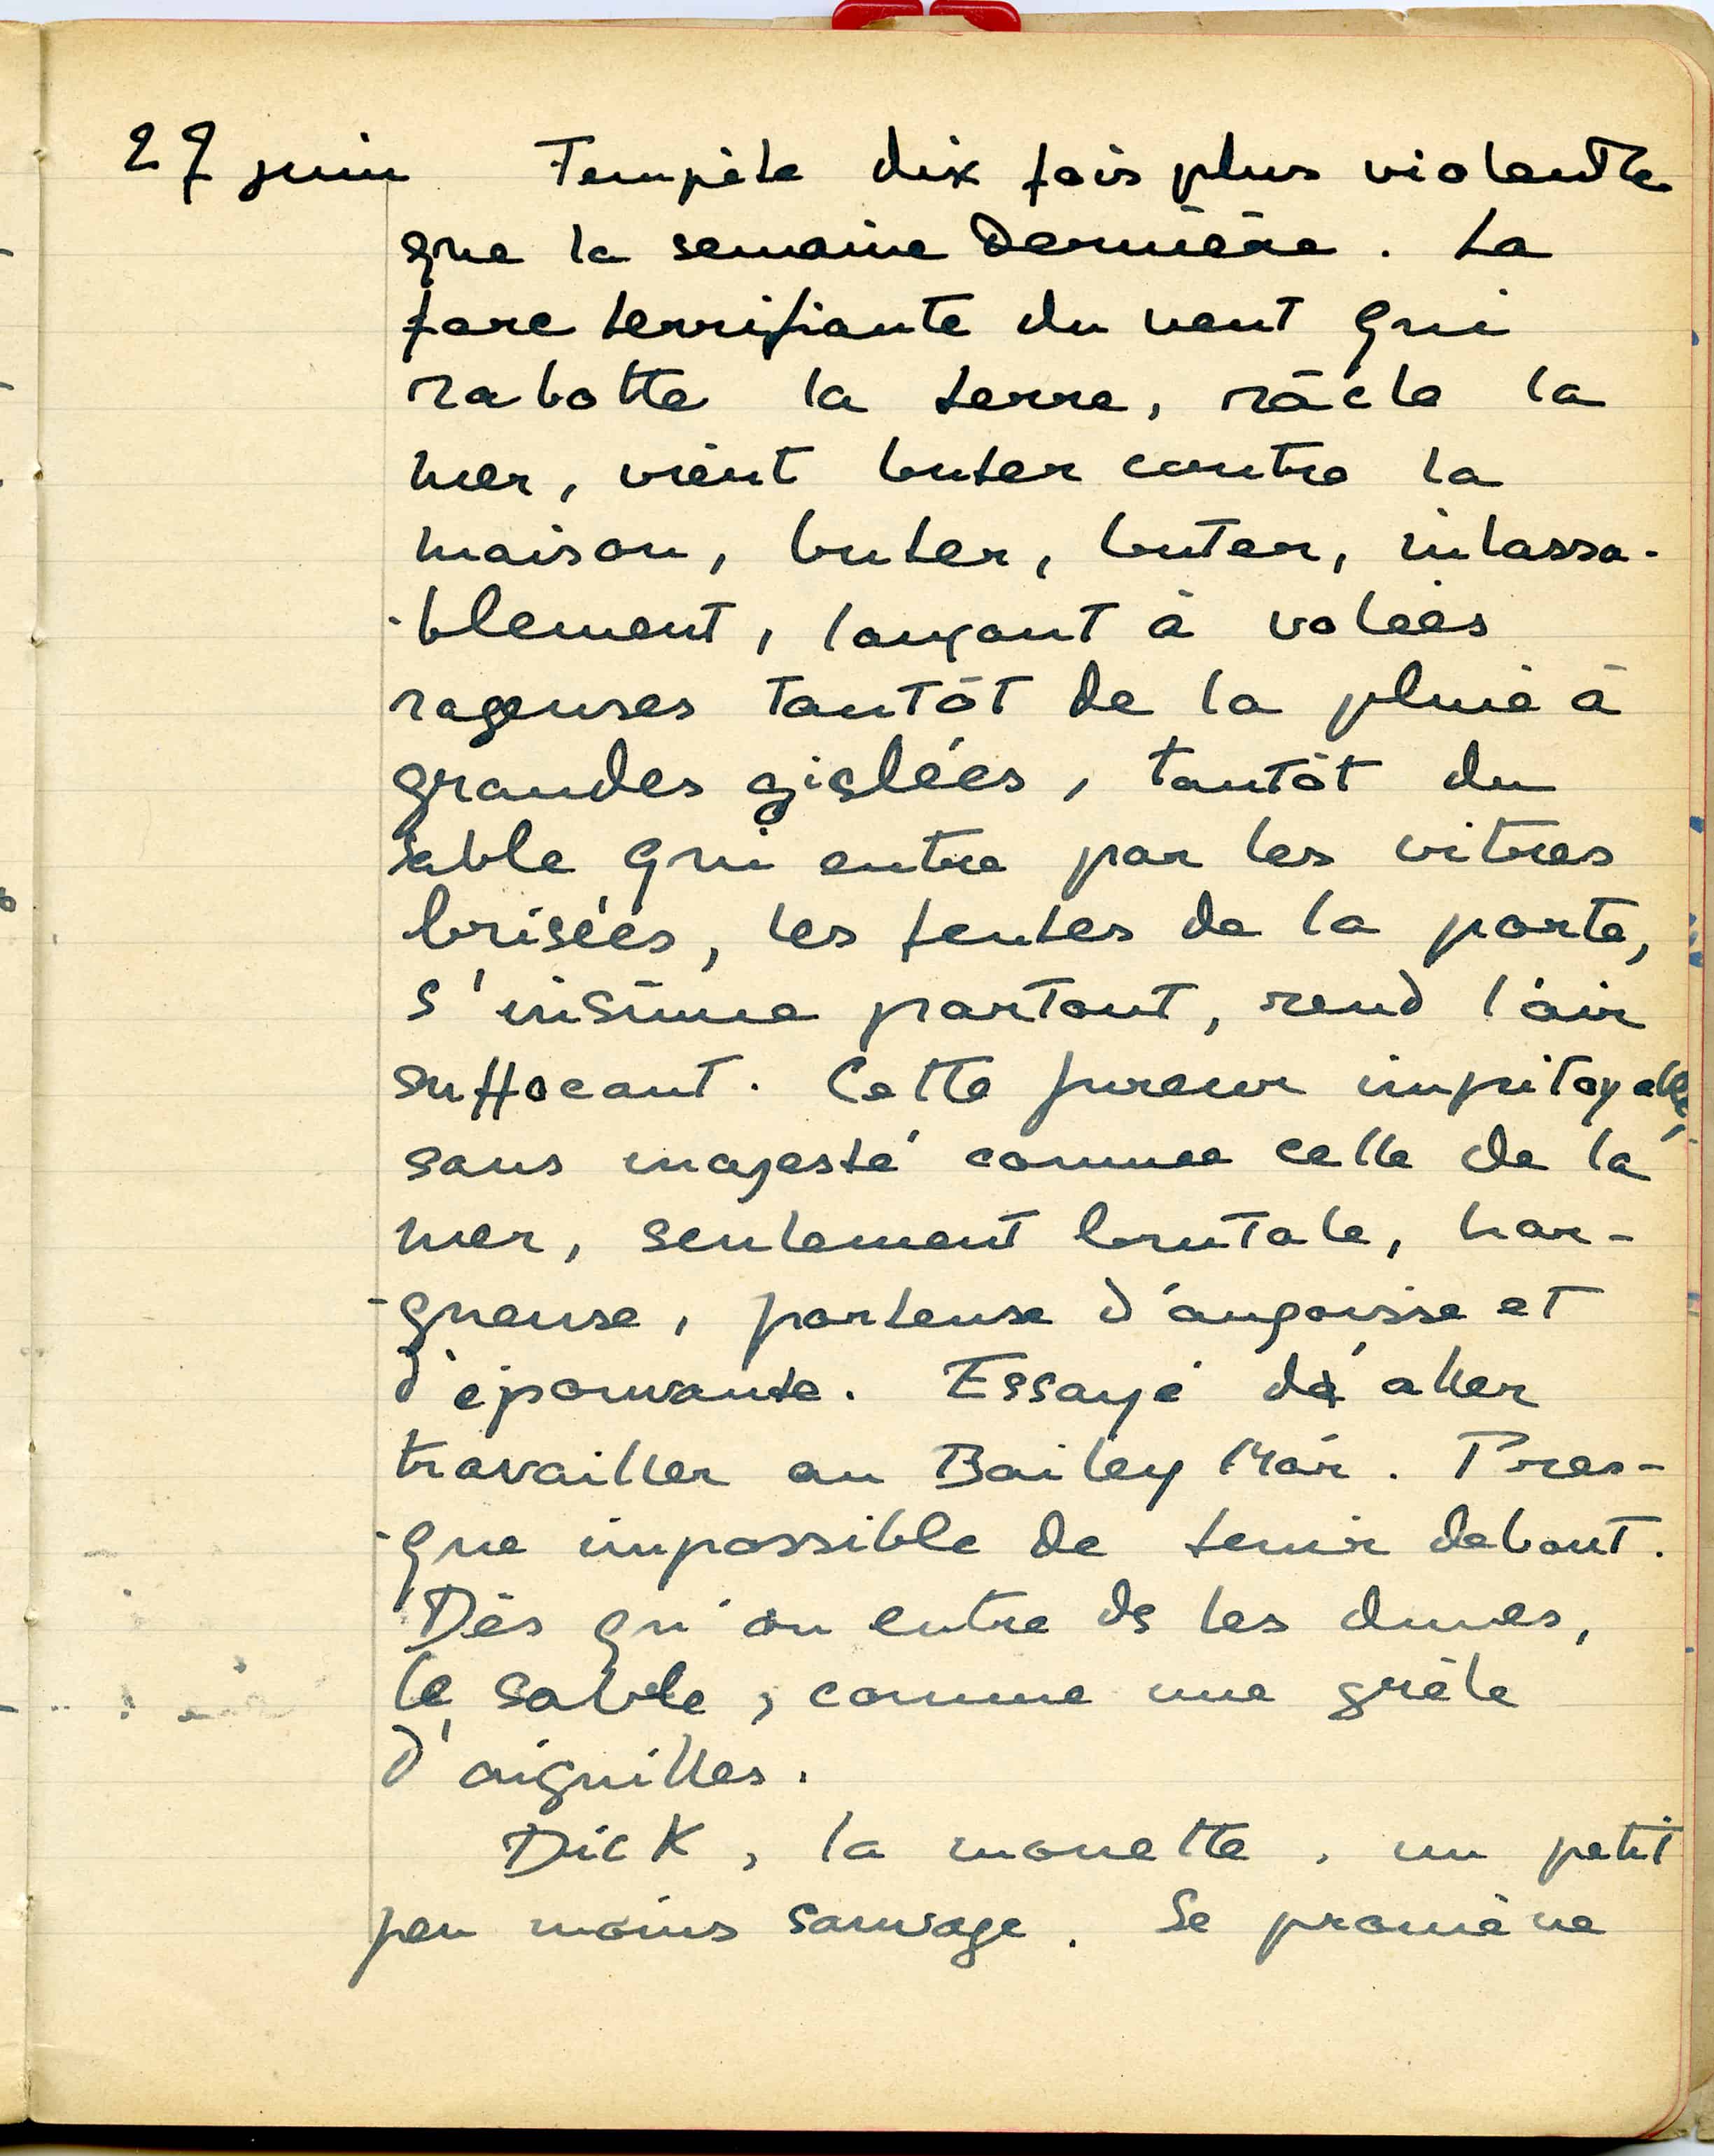 27 juin Tempête dix fois plus violente
que la semaine dernière. La
force terrifiante du vent qui
rabotte la terre, râcle la
mer, vient buter contre la
maison, buter, buter, inlassa-
-blement, lançant à volées
rageuses tantôt de la pluie à
grandes giclées, tantôt du
sable qui entre par les vitres
brisées, les fentes de la porte,
s'insinue partout, rend l'air
suffocant. Cette fureur impitoyable,
sans majesté comme celle de la
mer, seulement brutale, har-
-gneuse, porteuse d'angoisse et
d'épouvante. Essayé d'aller
travailler au Bailey Mór. Pres-
-que impossible de tenir debout.
Dès qu'on entre ds les dunes,
le sable, comme une grêle
d'aiguilles.
Dick, la mouette, un petit
peu moins sauvage. Se promène